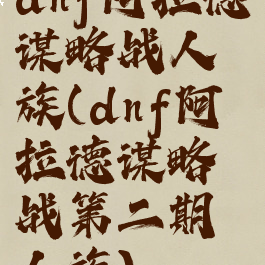 dnf阿拉德
谋略战人
族(dnf阿
拉德谋略
战第二期
人族)